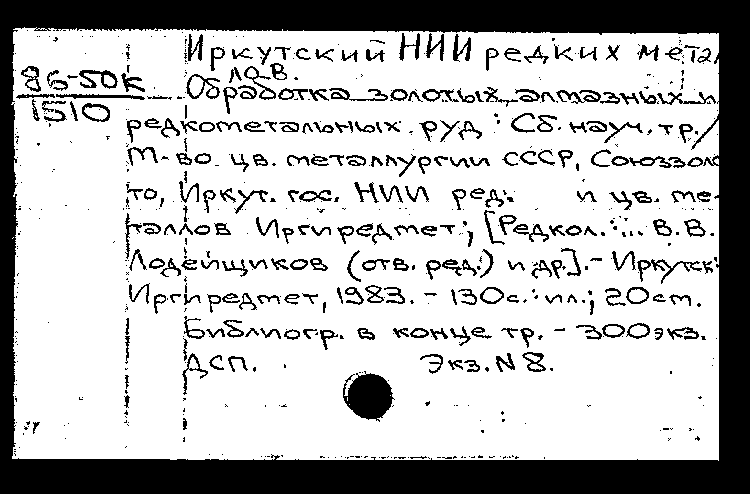 Иркутский НИИ редких метал
лов.
86-50К
1510
Обработка золотых, алмазных и
редкометальных руд : Сб. науч. тр./
М-во цв. металлургии СССР, Союззоло
то, Иркут. гос. НИИ ред. и цв. ме-
таллов Иргиредмет; [Редкол.:... В.В.
Лодейщиков (отв. ред.) и др.].- Иркутск:
Иргиредмет, 1983. - 130с.: ил.; 20см.
Библиогр. в конце тр. - 300экз.
ДСП. Экз. N 8.